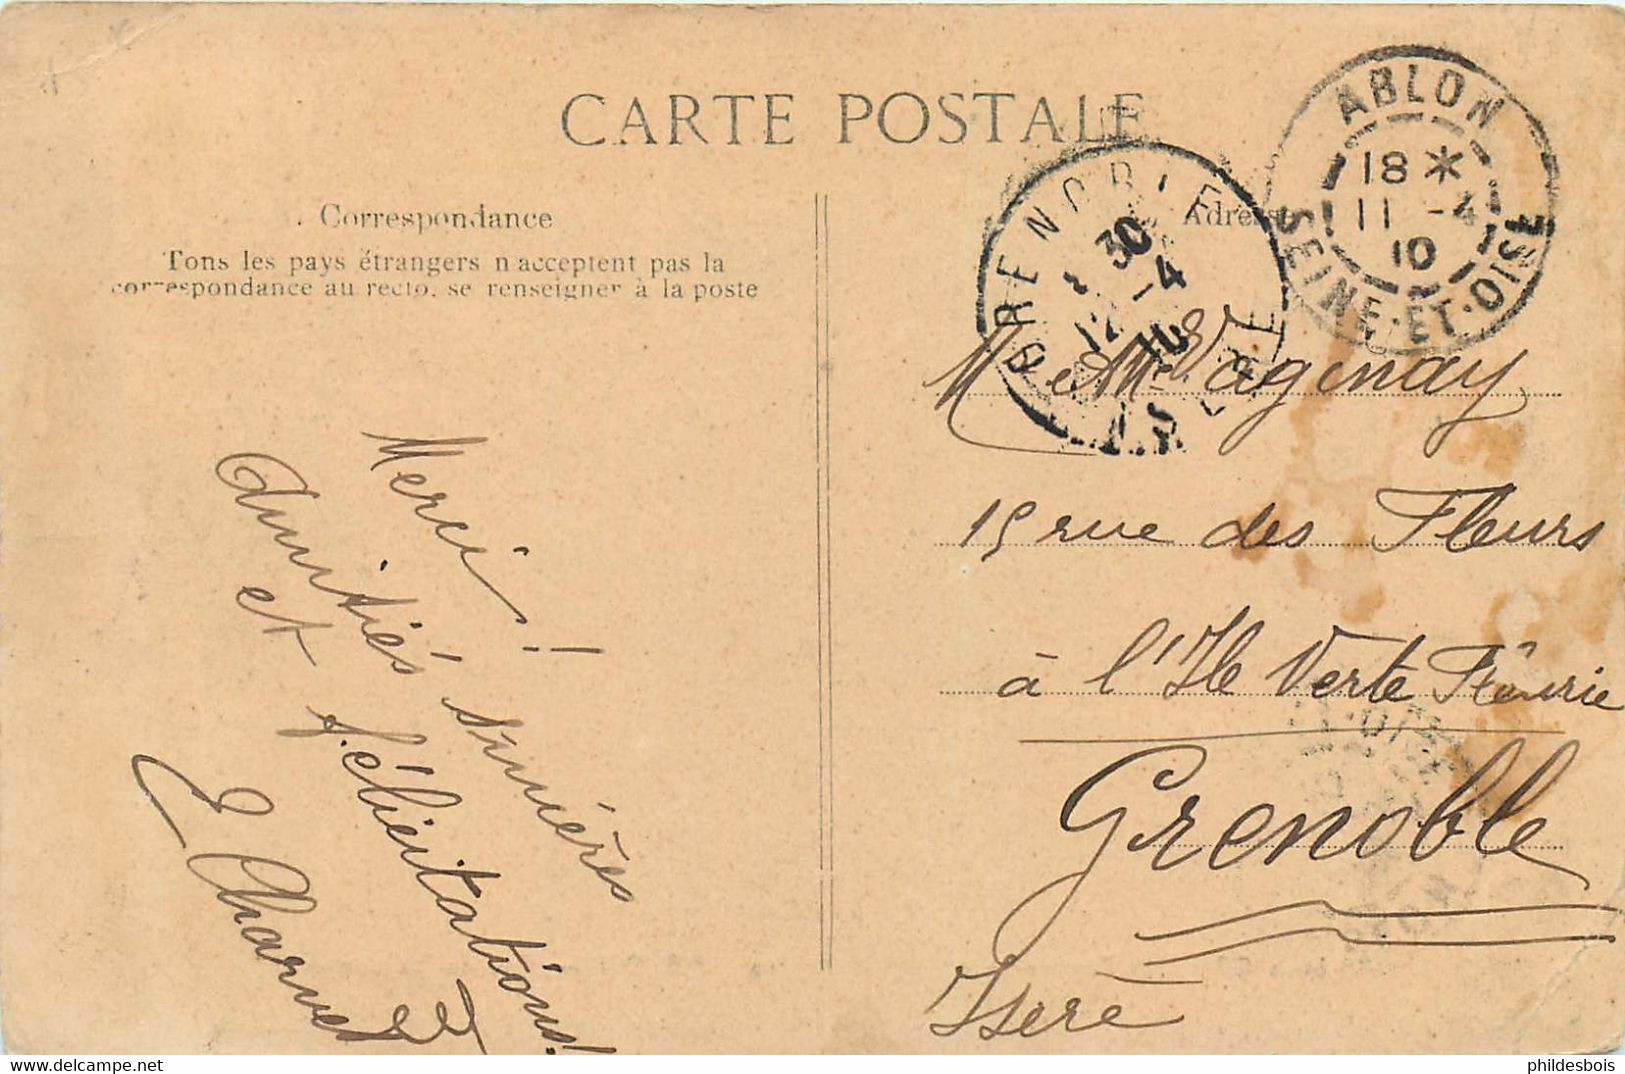 CARTE POSTALE
Correspondance
Tous les pays étrangers n'acceptent pas la
correspondance au recto, se renseigner à la poste
Adresse
ABLON
18 *
11 -4
10
SEINE-ET-OISE
GRENOBLE
30
12 -4
10
ISERE
M et Mme Vagenay
15 rue des Fleurs
à l'Ile Verte Fleurie
Grenoble
Isère
Merci !
Amitiés sincères
et félicitations!
E Charvet
delcampe.net
phildesbois